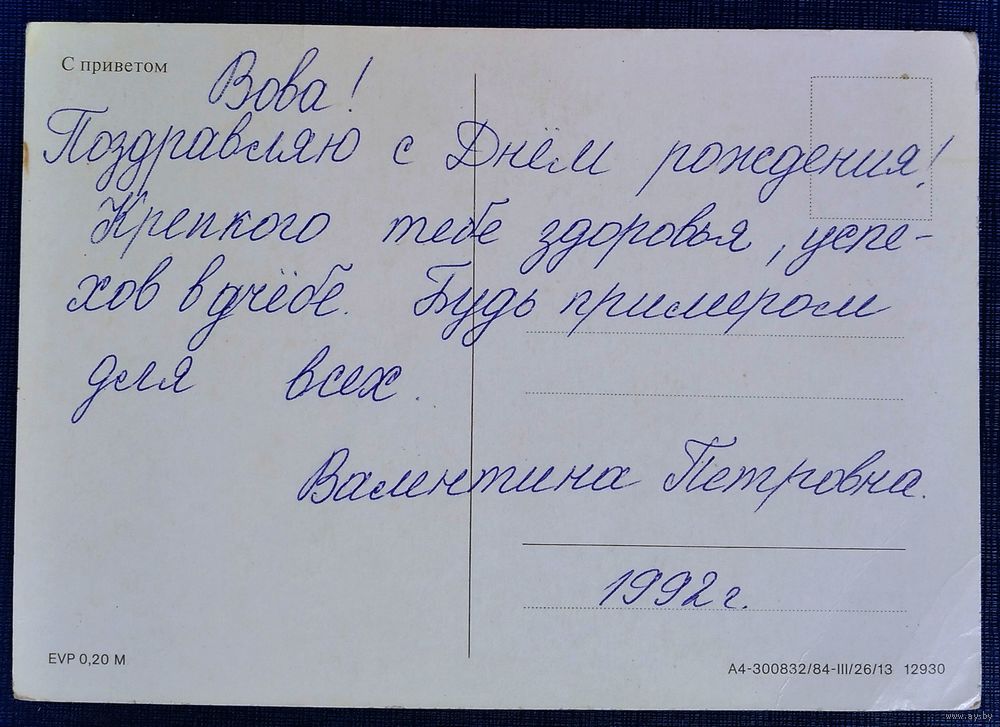 С приветом
Вова!
Поздравляю с Днём рождения!
Крепкого тебе здоровья, успе-
хов в учёбе. Будь примером
для всех.
Валентина Петровна.
1992 г.
EVP 0,20 M
A4-300832/84-III/26/13 12930
www.ay.by